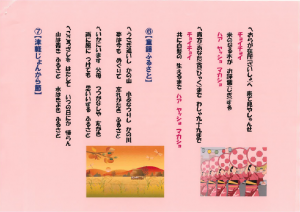 来て見やしゃんせ
米のなる木が
チョイチョイ
ハア ヤッショ マカショ
わしゃ九十九まで
チョイチョイ
共に白髪の 生えるまで ハア ヤッショ マカショ
⑥【童謡ふるさと】
〽うさぎ追いし かの山 小ぶなつりし かの川
夢は今も めぐりて 忘れがたき ふるさと
〽いかにいます 父母 つつがなしや 友がき
雨に風に つけても 思いいずる ふるさと
〽こころざしを はたして いつの日にか 帰らん
山は青き ふるさと 水は清き ふるさと
⑦【津軽じょんから節】